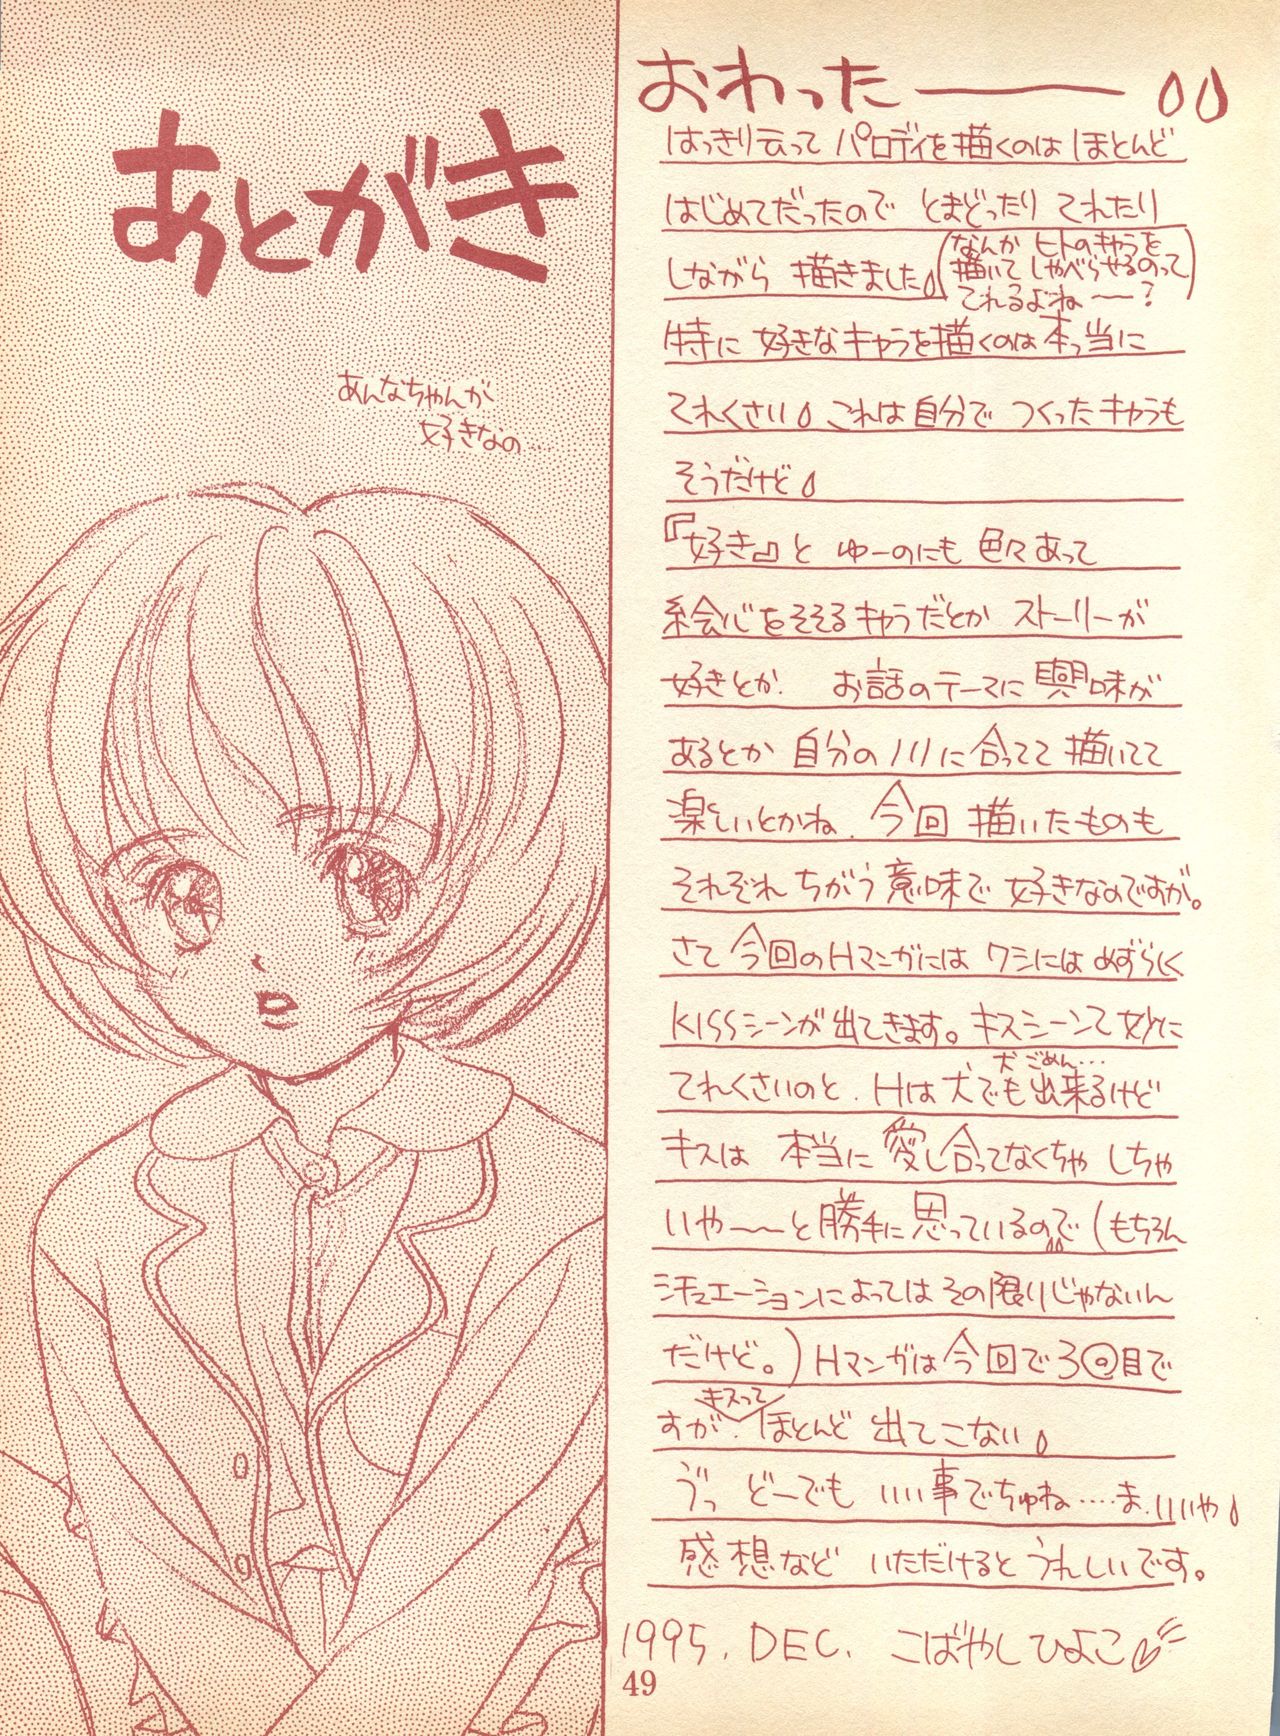 あとがき
あんなちゃんが
好きなの…
おわったー
はっきり云って パロディを描くのは ほとんど
はじめてだったので とまどったり てれたり
しながら 描きました
(なんか ヒトのキャラを
描いて しゃべらせるのって
てれるよねー?)
特に 好きなキャラを描くのは本っ当に
てれくさい これは自分で つくったキャラも
そうだけど
『好き』と ゆーのにも 色々あって
絵心をそそるキャラだとか ストーリーが
好きとか. お話のテーマに興味が
あるとか 自分のノリに合ってて 描いてて
楽しいとかね. 今回 描いたものも
それぞれ ちがう意味で 好きなのですが。
さて 今回のHマンガには ワシには めずらしく
KISSシーンが出てきます。キスシーンて妙に
犬 ごめん…
てれくさいのと. Hは犬でも出来るけど
キスは 本当に愛し合ってなくちゃ しちゃ
いや〜〜と勝手に思っているので (もちろん
シチュエーションによってはその限りじゃないん
だけど。) Hマンガは今回で3回目で
キスって
すが. ほとんど 出てこない
ゔっ どーでも いい事でちゅね….ま.いいや
感想など いただけると うれしいです。
1995. DEC. こばやしひよこ
49